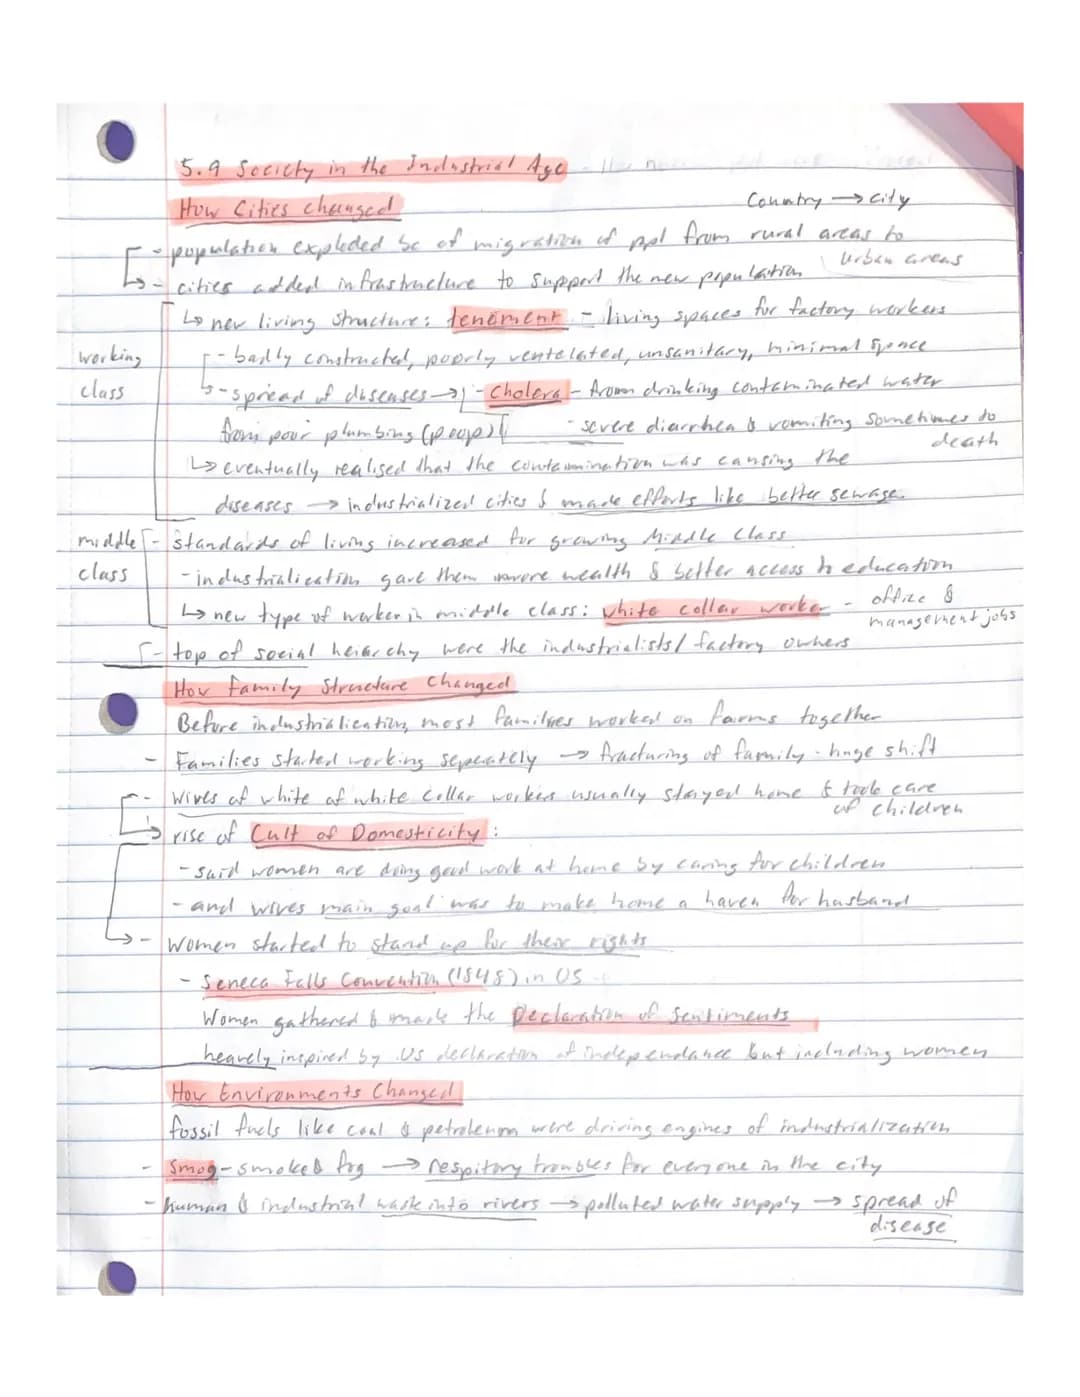 5.9 Society in the Industrial Age
How Cities changed
Country → city
- population exploded bc of migration of ppl from rural areas to
urban areas
- cities added infrastructure to support the new population
↳ new living structure: tenement - living spaces for factory workers
working
class
- badly constructed, poorly ventelated, unsanitary, minimal space
- spread of diseases → - Cholera - from drinking contaminated water
from poor plumbing (poop) - severe diarrhea & vomiting sometimes to
death
↳ eventually realised that the contamination was causing the
diseases → industrialized cities & made efforts like better sewage.
middle
class
- standards of living increased for growing Middle Class
- industrialication gave them more wealth & better access to education
↳ new type of worker in middle class: white collar worker - office &
management jobs
- top of social heiarchy were the industrialists/ factory owners
How Family Structure Changed
Before industrialication, most families worked on farms together
- Families started working seperately → fracturing of family - huge shift
- Wives of white of white collar workers usually stayed home & took care
of children
rise of Cult of Domesticity :
- said women are doing good work at home by caring for children
- and wives main goal was to make home a haven for husband
- Women started to stand up for their rights
- Seneca Falls Convention (1848) in US
Women gathered & made the Declaration of Sentiments
heavely inspired by US declaration of independance but including women
How Environments Changed
fossil fuels like coal & petroleum were driving engines of industrialization
- Smog - smoke & fog → respitory troubles for everyone in the city
- human & industrial waste into rivers → polluted water supply → spread of
disease